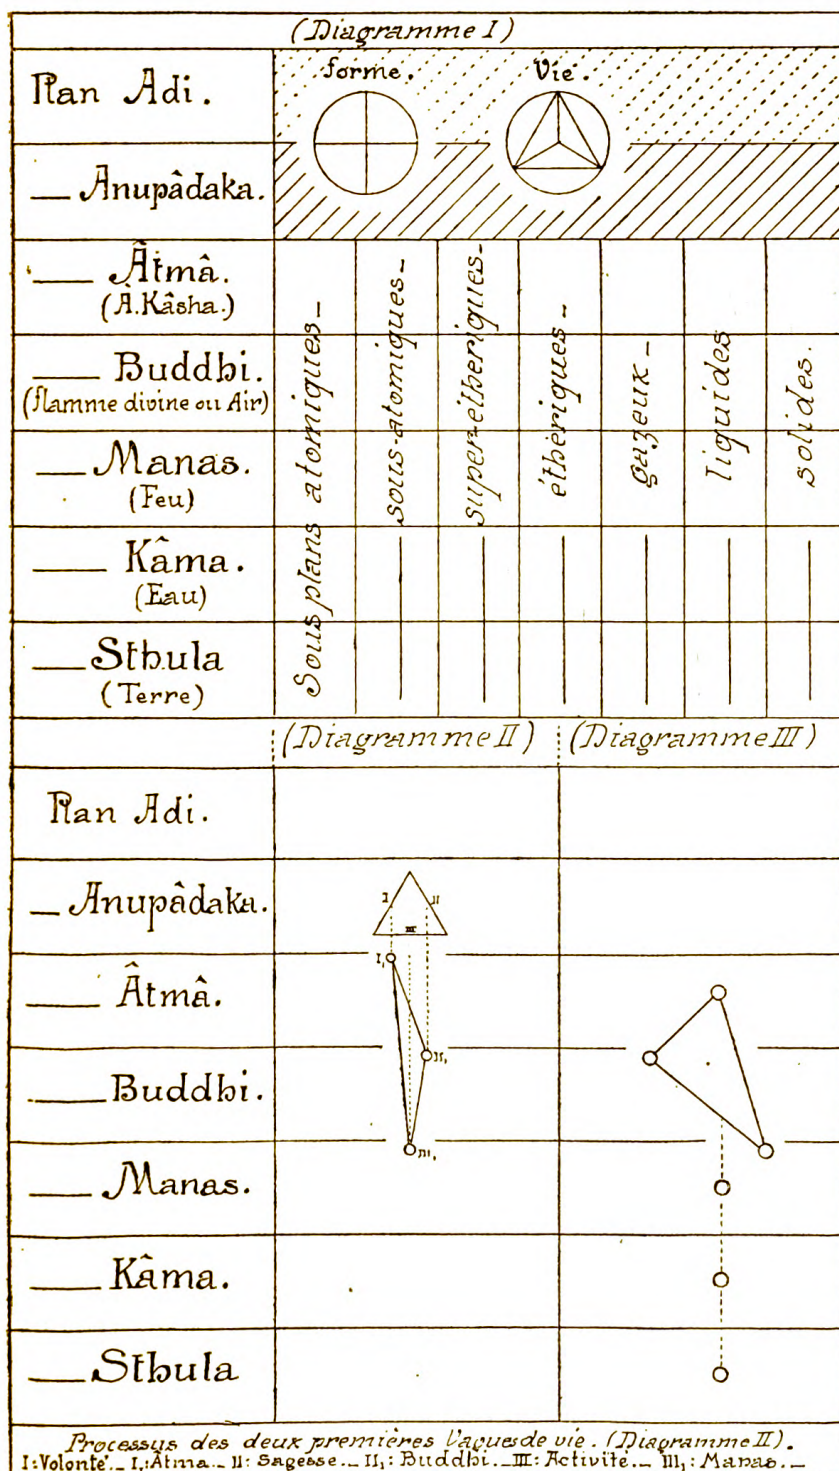 (Diagramme I)
forme. Vie.
Plan Adi.
— Anupâdaka.
— Âtmâ.
(A.Kâsha.)
— Buddhi.
(flamme divine ou Air)
— Manas.
(Feu)
— Kâma.
(Eau)
— Sthula
(Terre)
Sous plans atomiques —
sous-atomiques —
super-éthériques —
éthériques —
gazeux —
liquides
solides.
(Diagramme II) (Diagramme III)
Plan Adi.
— Anupâdaka.
I II
III
— Âtmâ.
I₁
— Buddhi.
II₁
— Manas.
III₁
— Kâma.
— Sthula
Processus des deux premières Vagues de vie. (Diagramme II).
I: Volonté._ I₁: Âtma._ II: Sagesse._ II₁: Buddhi._ III: Activité._ III₁: Manas._